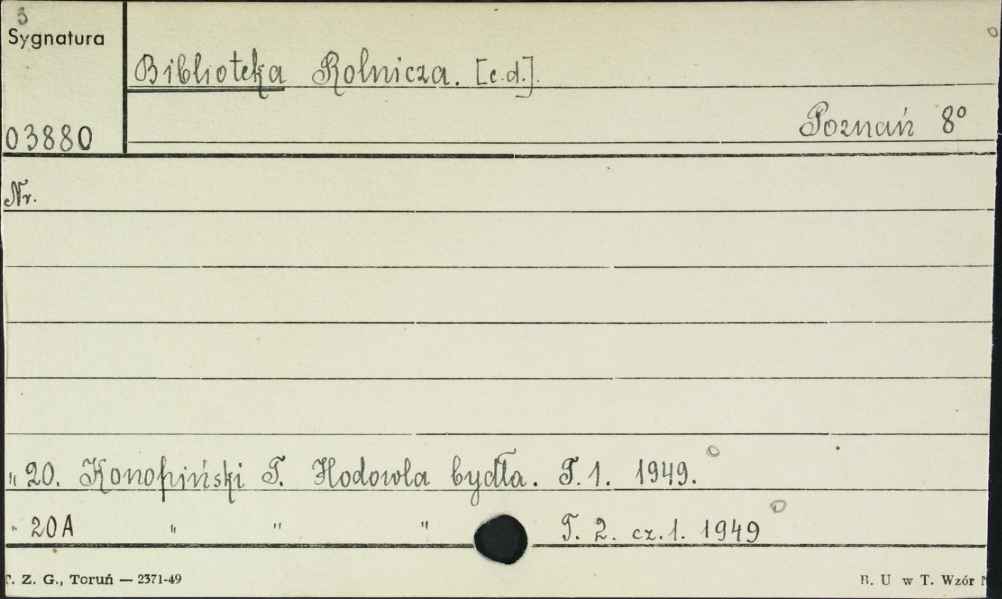 3
Sygnatura
Biblioteka Rolnicza. [c.d.].
03880
Poznań 8°
Nr.
" 20. Konopiński T. Hodowla bydła. T. 1. 1949.
" 20A " " " T. 2. cz. 1. 1949
T. Z. G., Toruń — 2371-49
B. U w T. Wzór